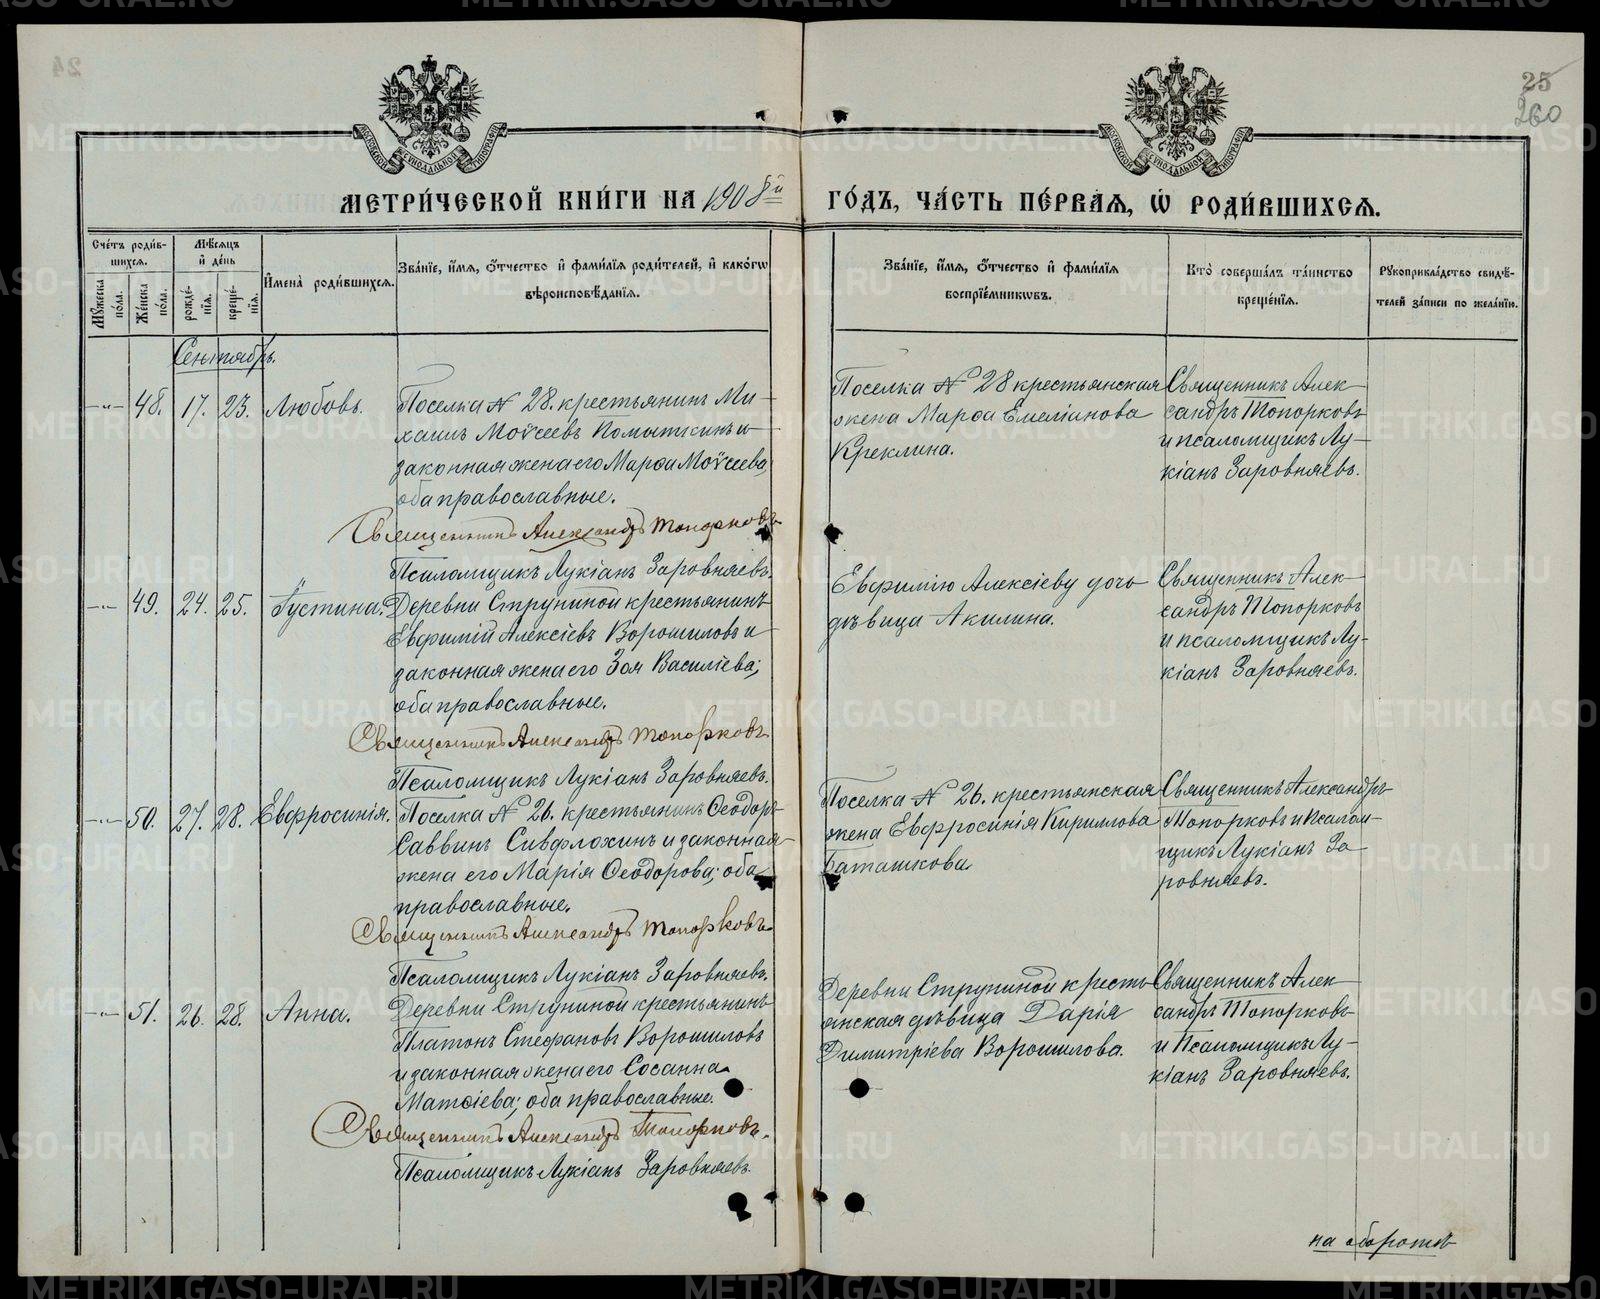 25
260
МЕТРИ́ЧЕСКОЙ КНИ́ГИ НА 1908й
ГО́ДЪ, ЧА́СТЬ ПЕ́РВАЯ, Ѡ РОДИ́ВШИХСЯ.
Сче́тъ роди́вшихся.
Му́жеска по́ла.
Же́нска по́ла.
Мѣ́сяцъ и де́нь
рожде́нія.
креще́нія.
Имена̀ роди́вшихся.
Зва́ніе, и́мя, о́тчество и фами́лія роди́телей, и како́гѡ
вѣроисповѣ́данія.
Зва́ніе, и́мя, о́тчество и фами́лія
воспріе́мникѡвъ.
Кто̀ соверша́лъ та́инство
креще́нія.
Рукоприкла́дство свидѣ́-
телей за́писи по жела́нію.
Сентябрь.
-"- 48. 17. 23. Любовь.
Поселка № 28. крестьянинъ Ми-
хаилъ Моѵсеевъ Помыткинъ и
законная жена его Марѳа Моѵсеева,
оба православные.
Священникъ Александръ Топорковъ
Псаломщикъ Лукіанъ Заровняевъ.
Поселка № 28 крестьянская
жена Марѳа Емеліанова
Креклина.
Священникъ Алек-
сандръ Топорковъ
и псаломщикъ Лу-
кіанъ Заровняевъ.
-"- 49. 24. 25. Іустина.
Деревни Струниной крестьянинъ
Евфимій Алексіевъ Ворошиловъ и
законная жена его Зоя Василіева;
оба православные.
Священникъ Александръ Топорковъ
Псаломщикъ Лукіанъ Заровняевъ.
Евфимію Алексіеву дочь
дѣвица Акилина.
Священникъ Алек-
сандръ Топорковъ
и псаломщикъ Лу-
кіанъ Заровняевъ.
-"- 50. 27. 28. Евфросинія.
Поселка № 26. крестьянинъ Ѳеодоръ
Саввинъ Сивфлохинъ и законная
жена его Марія Ѳеодорова; оба
православные.
Священникъ Александръ Топорковъ
Псаломщикъ Лукіанъ Заровняевъ.
Поселка № 26. крестьянская
жена Евфросинія Кириллова
Баташкова.
Священникъ Александръ
Топорковъ и Псалом-
щикъ Лукіанъ За-
ровняевъ.
-"- 51. 26. 28. Анна.
Деревни Струниной крестьянинъ
Платонъ Стефановъ Ворошиловъ
и законная жена его Сосанна
Матѳіева; оба православные.
Священникъ Александръ Топорковъ.
Псаломщикъ Лукіанъ Заровняевъ.
Деревни Струниной кресть-
янская дѣвица Дарія
Димитріева Ворошилова.
Священникъ Алек-
сандръ Топорковъ
и Псаломщикъ Лу-
кіанъ Заровняевъ.
на оборотѣ